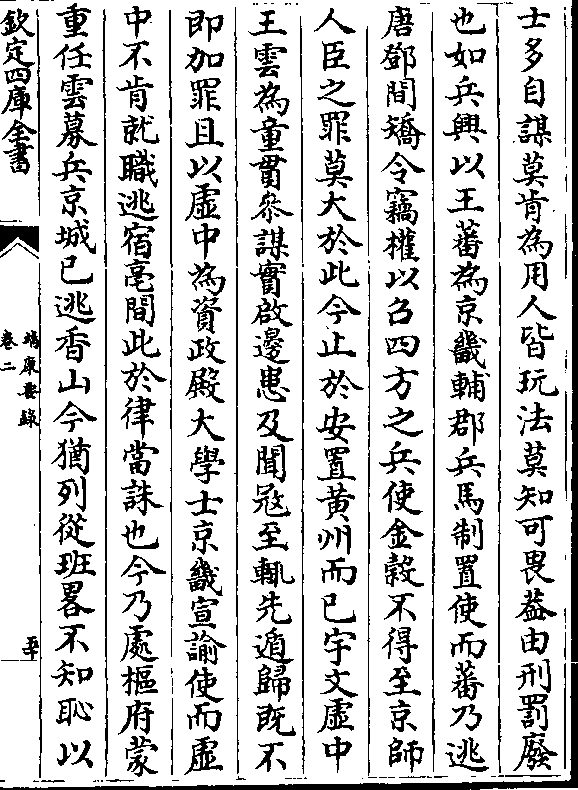 士多自謀莫肯為用人皆玩法莫知可畏葢由刑罰廢
也如兵興以王蕃為京畿輔郡兵馬制置使而蕃乃逃
唐鄧間矯令竊權以召四方之兵使金穀不得至京師
人臣之罪莫大於此今止於安置黄州而已宇文虛中
王雲為童貫叅謀實啟邊患及聞寇至輒先遁歸既不
即加罪且以虛中為資政殿大學士京畿宣諭使而虛
中不肯就職逃宿亳間此於律當誅也今乃處樞府蒙
重任雲募兵京城已逃香山今猶列從班畧不知恥以
欽定四庫全書
靖康要錄
卷二